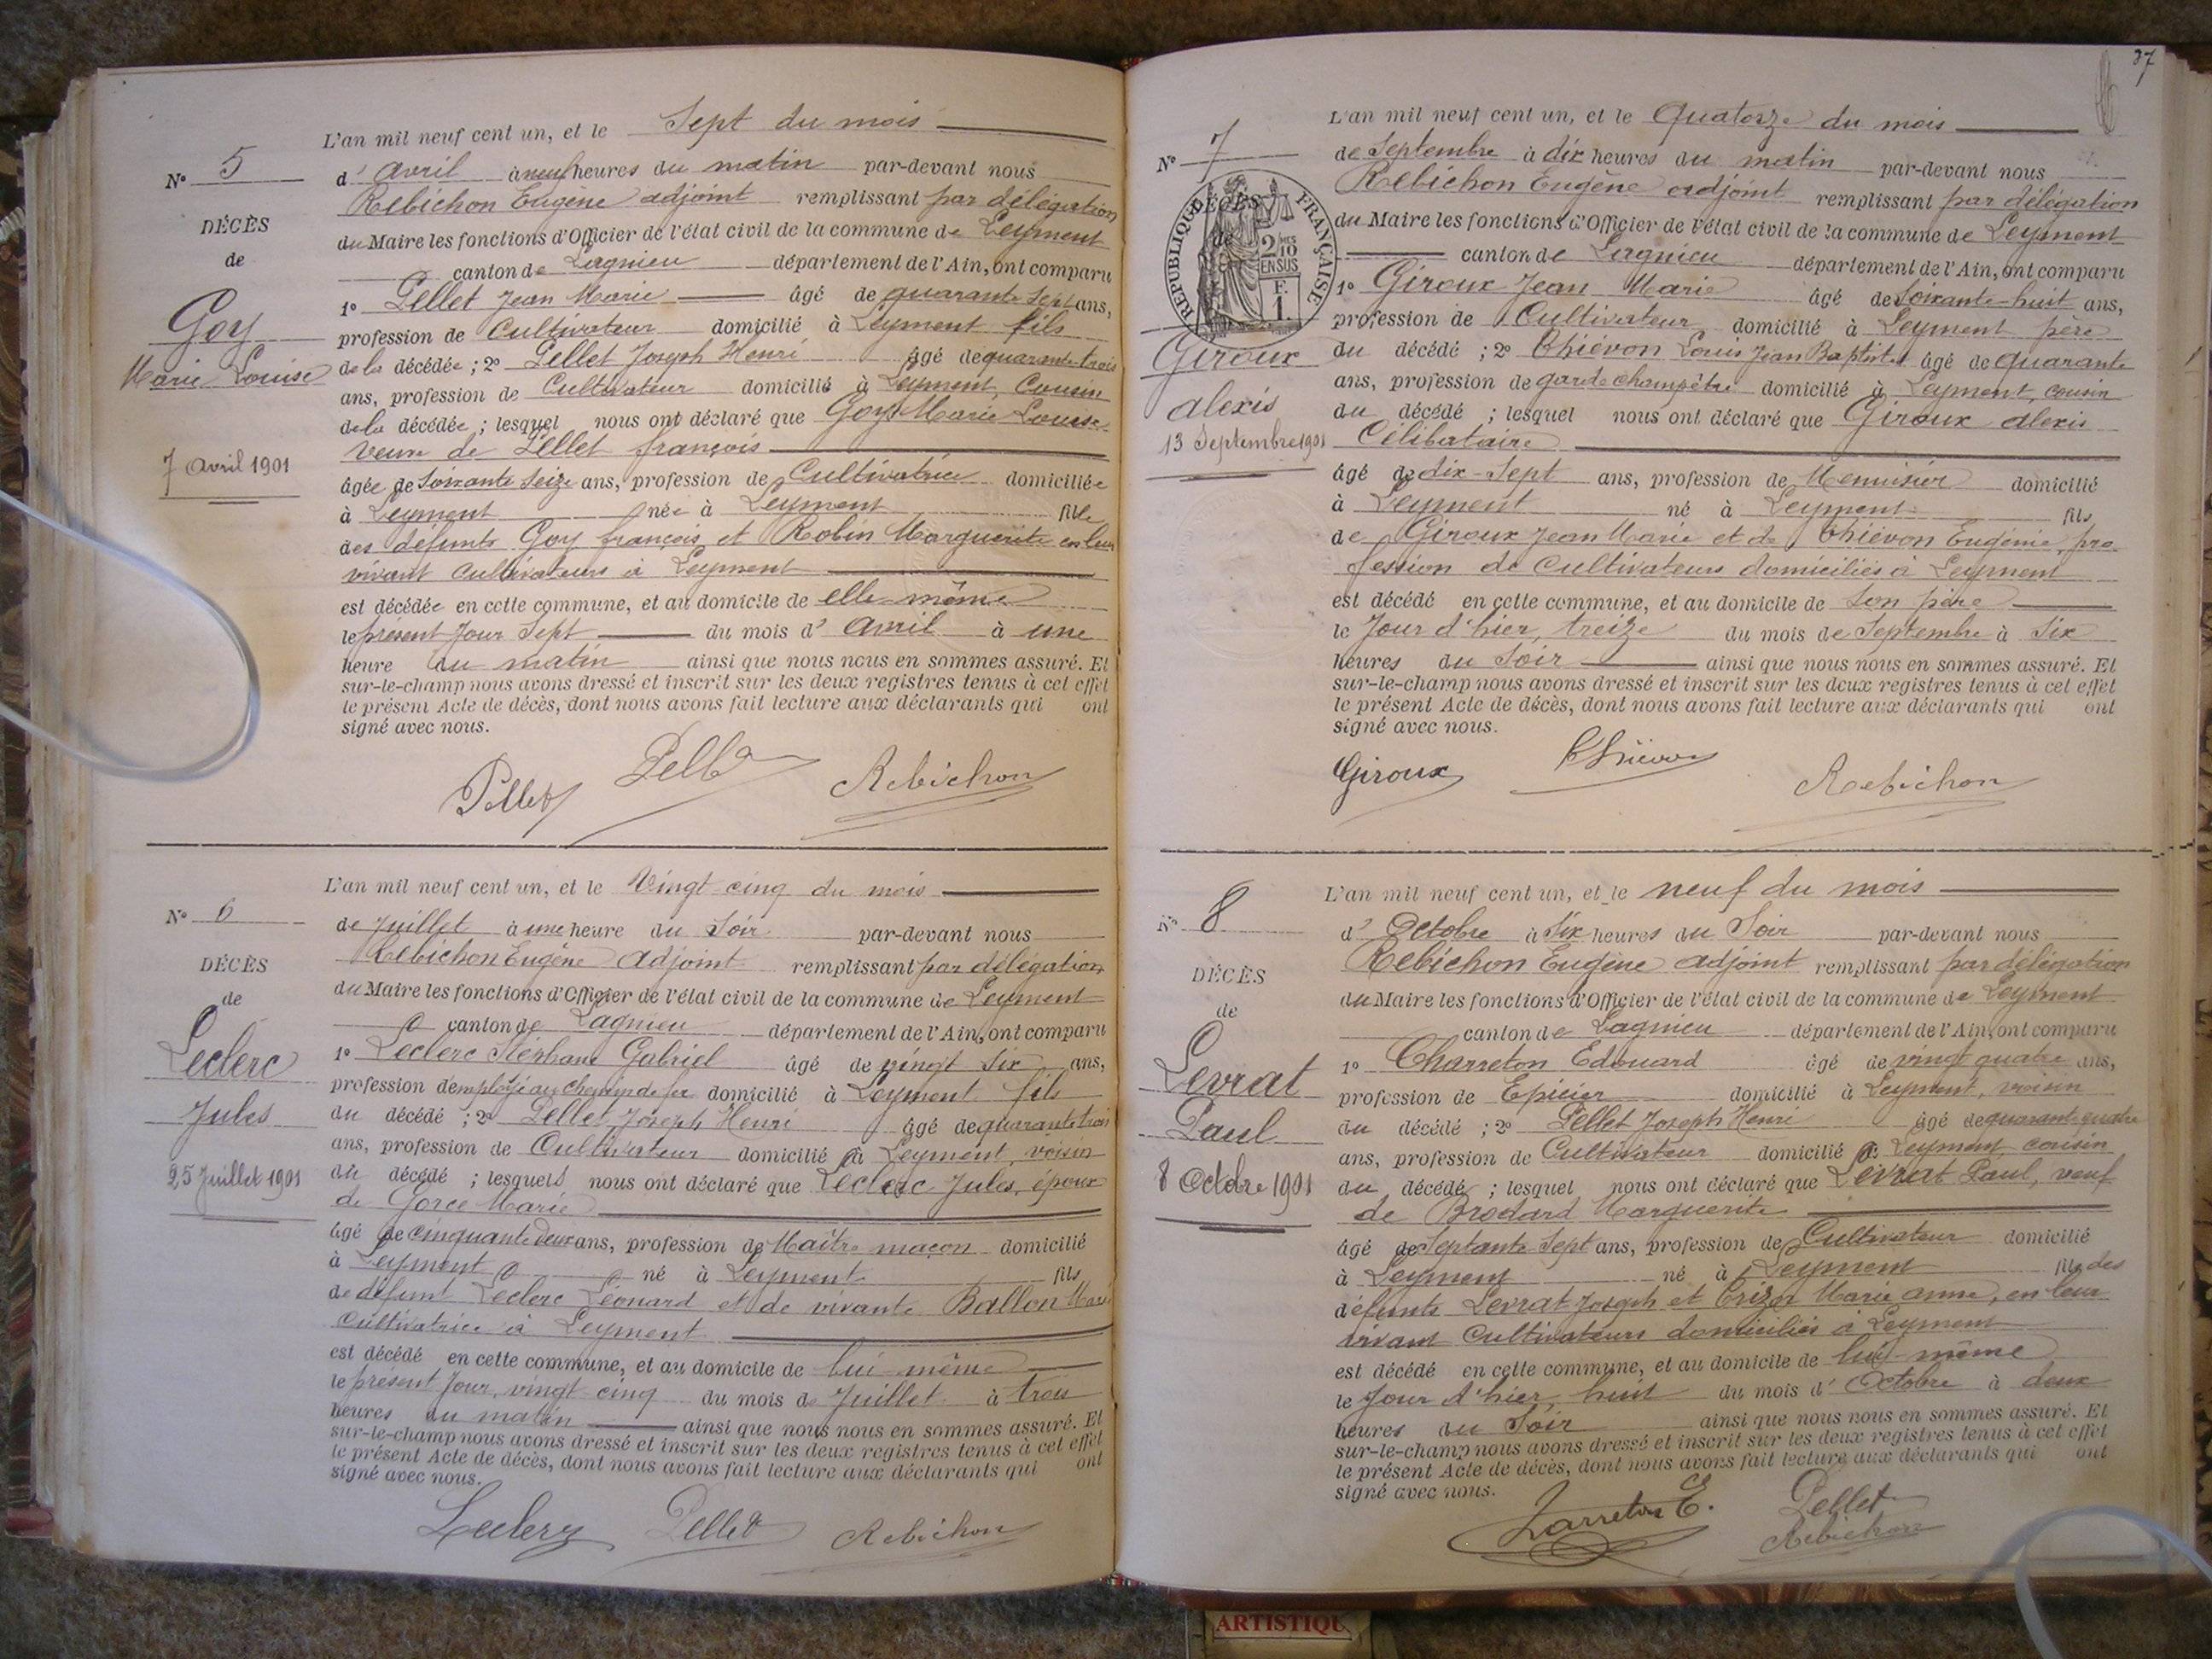 L'an mil neuf cent un, et le Sept du mois
N° 5
d' avril à neuf heures du matin par-devant nous
Rebichon Eugène adjoint remplissant par délégation
DÉCÈS
du Maire les fonctions d'Officier de l'état civil de la commune de Leyment
de
canton de Lagnieu département de l'Ain, ont comparu
1° Pellet Jean Marie âgé de quarante sept ans,
Goy
profession de Cultivateur domicilié à Leyment fils
Marie Louise
de la décédée ; 2° Pellet Joseph Henri âgé de quarante-trois
ans, profession de Cultivateur domicilié à Leyment, Cousin
de la décédée ; lesquel nous ont déclaré que Goy Marie Louise
7 Avril 1901
veuve de Pellet françois
âgée de Soixante Seize ans, profession de Cultivatrice domiciliée
à Leyment née à Leyment fille
des défunts Goy françois et Robin Marguerite en leur
vivant Cultivateurs à Leyment
est décédée en cette commune, et au domicile de elle-même
le présent Jour Sept du mois d' Avril à une
heure du matin ainsi que nous nous en sommes assuré. Et
sur-le-champ nous avons dressé et inscrit sur les deux registres tenus à cet effet
le présent Acte de décès, dont nous avons fait lecture aux déclarants qui ont
signé avec nous.
Pellet Pellet Rebichon
L'an mil neuf cent un, et le Vingt-cinq du mois
N° 6
de Juillet à une heure du Soir par-devant nous
Rebichon Eugène Adjoint remplissant par délégation
DÉCÈS
du Maire les fonctions d'Officier de l'état civil de la commune de Leyment
de
canton de Lagnieu département de l'Ain, ont comparu
Leclerc
1° Leclerc Stéphane Gabriel âgé de vingt six ans,
profession d'employé au chemin de fer domicilié à Leyment fils
Jules
du décédé ; 2° Pellet Joseph Henri âgé de quarante trois
ans, profession de Cultivateur domicilié à Leyment, voisin
25 Juillet 1901
du décédé ; lesquels nous ont déclaré que Leclerc Jules, époux
de Gorce Marie
âgé de cinquante deux ans, profession de Maître maçon domicilié
à Leyment né à Leyment fils
de défunt Leclerc Léonard et de vivante Ballon Marie
Cultivatrice à Leyment
est décédé en cette commune, et au domicile de lui-même
le présent Jour, vingt cinq du mois de Juillet à trois
heures du matin ainsi que nous nous en sommes assuré. Et
sur-le-champ nous avons dressé et inscrit sur les deux registres tenus à cet effet
le présent Acte de décès, dont nous avons fait lecture aux déclarants qui ont
signé avec nous.
Leclerc Pellet Rebichon
37
L'an mil neuf cent un, et le Quatorze du mois
N° 7
de Septembre à dix heures du matin par-devant nous
Rebichon Eugène adjoint remplissant par délégation
DÉCÈS
de
RÉPUBLIQUE FRANÇAISE
2/10 MES EN SUS
F. 1.
du Maire les fonctions d'Officier de l'état civil de la commune de Leyment
canton de Lagnieu département de l'Ain, ont comparu
1° Giroux Jean Marie âgé de Soixante-huit ans,
profession de Cultivateur domicilié à Leyment père
Giroux
du décédé ; 2° Thiévon Louis Jean Baptiste âgé de quarante
ans, profession de garde champêtre domicilié à Leyment, cousin
alexis
du décédé ; lesquel nous ont déclaré que Giroux alexis
13 Septembre 1901
Célibataire
âgé de dix-Sept ans, profession de Menuisier domicilié
à Leyment né à Leyment fils
de Giroux Jean Marie et de Thiévon Eugénie, pro-
fession de Cultivateurs domiciliés à Leyment
est décédé en cette commune, et au domicile de Son père
le Jour d'hier, treize du mois de Septembre à Six
heures du Soir ainsi que nous nous en sommes assuré. Et
sur-le-champ nous avons dressé et inscrit sur les deux registres tenus à cet effet
le présent Acte de décès, dont nous avons fait lecture aux déclarants qui ont
signé avec nous.
Giroux Thiévon Rebichon
L'an mil neuf cent un, et le neuf du mois
N° 8
d' Octobre à Six heures du Soir par-devant nous
Rebichon Eugène adjoint remplissant par délégation
DÉCÈS
du Maire les fonctions d'Officier de l'état civil de la commune de Leyment
de
canton de Lagnieu département de l'Ain, ont comparu
Levrat
1° Charreton Edouard âgé de vingt quatre ans,
profession de Epicier domicilié à Leyment, voisin
Paul
du décédé ; 2° Pellet Joseph Henri âgé de quarante quatre
ans, profession de Cultivateur domicilié à Leyment, cousin
8 Octobre 1901
du décédé ; lesquel nous ont déclaré que Levrat Paul, veuf
de Brodard Marguerite
âgé de Septante-Sept ans, profession de Cultivateur domicilié
à Leyment né à Leyment fils des
défunts Levrat Joseph et Marie anne, en leur
vivant Cultivateurs domiciliés à Leyment
est décédé en cette commune, et au domicile de lui-même
le Jour d'hier, huit du mois d' Octobre à deux
heures du Soir ainsi que nous nous en sommes assuré. Et
sur-le-champ nous avons dressé et inscrit sur les deux registres tenus à cet effet
le présent Acte de décès, dont nous avons fait lecture aux déclarants qui ont
signé avec nous.
Charreton E. Pellet
Rebichon
ARTISTIQU